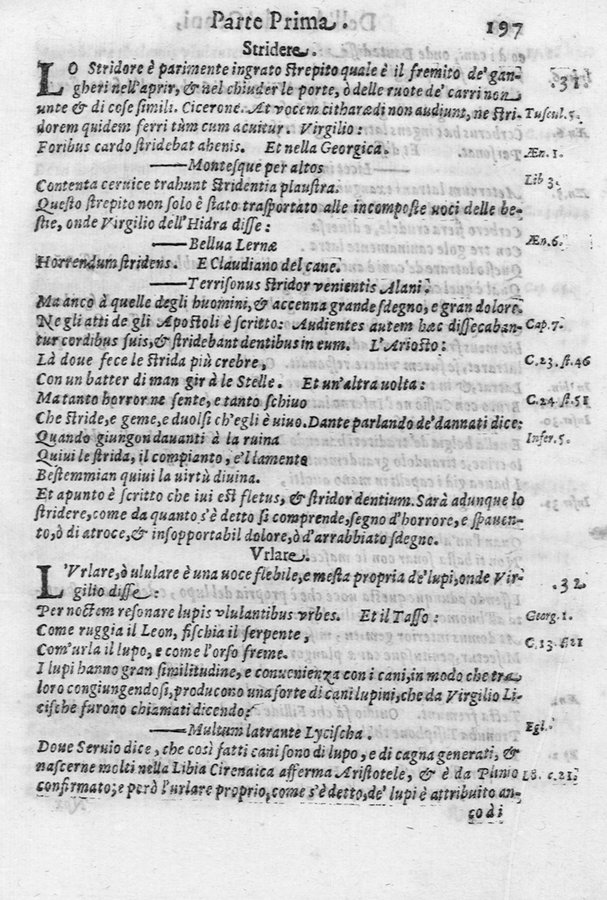 Parte Prima. 197
Stridere.
LO Stridore è parimente ingrato strepito quale è il fremito de' gan- .31.
gheri nell'aprir, & nel chiuder le porte, ò delle ruote de' carri non
unte & di cose simili. Cicerone. At vocem citharædi non audiunt, ne stri- Tuscul. 5.
dorem quidem ferri tùm cum acuitur. Virgilio:
Foribus cardo stridebat ahenis. Et nella Georgica. Æn. 1.
——Montesque per altos
Contenta ceruice trahunt Stridentia plaustra. Lib 3.
Questo strepito non solo è stato trasportato alle incomposte voci delle be-
stie, onde Virgilio dell'Hidra disse:
——Bellua Lernæ Æn. 6.
Horrendum stridens. E Claudiano del cane.
——Terrisonus stridor venientis Alani.
Ma anco à quelle degli huomini, & accenna grande sdegno, e gran dolore.
Ne gli atti de gli Apostoli è scritto: Audientes autem hæc dissecaban- Cap. 7.
tur cordibus suis, & stridebant dentibus in eum. L'Ariosto:
Là doue fece le strida più crebre, C. 23. st. 46
Con un batter di man gir à le Stelle. Et un'altra uolta:
Ma tanto horror ne sente, e tanto schiuo C. 24. st. 51
Che stride, e geme, e duolsi ch'egli è uiuo. Dante parlando de' dannati dice:
Quando giungon dauanti à la ruina Infer. 5.
Quiui le strida, il compianto, e'l lamento
Bestemmian quiui la uirtù diuina.
Et apunto è scritto che iui est fletus, & stridor dentium. Sarà adunque lo
stridere, come da quanto s'è detto si comprende, segno d'horrore, e spauen-
to, ò di atroce, & insopportabil dolore, ò d'arrabbiato sdegno.
Vrlare.
L'Vrlare, ò ululare è una uoce flebile, e mesta propria de' lupi, onde Vir- .32
gilio disse:
Per noctem resonare lupis vlulantibus vrbes. Et il Tasso: Georg. 1.
Come ruggia il Leon, fischia il serpente,
Com'urla il lupo, e come l'orso freme. C. 13. st 21
I lupi hanno gran similitudine, e conuenienza con i cani, in modo che tra
loro congiungendosi, producono una sorte di cani lupini, che da Virgilio Li-
cische furono chiamati dicendo:
——Multum latrante Lycisca. Egl.
Doue Seruio dice, che così fatti cani sono di lupo, e di cagna generati, &
nascerne molti nella Libia Cirenaica afferma Aristotele, & è da Plinio L 8. c. 21.
confirmato; e però l'urlare proprio, come s'è detto, de' lupi è attribuito an-
co di